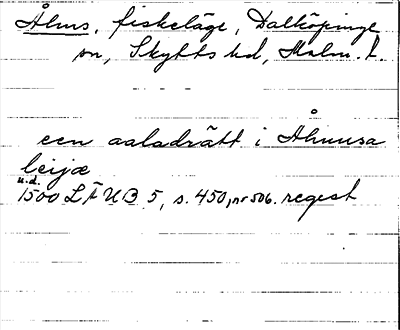 Åhus, fiskeläge, Dalköpinge
sn, Skytts hd, Malm. l.
een aaladrätt i Åhuusa
leijæ
u.d.
1500 LÄUB 5, s. 450, nr 506. regest